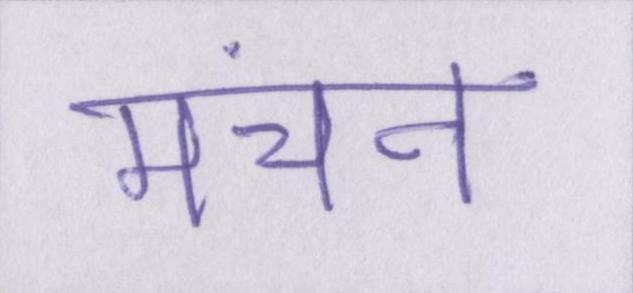 मंचन